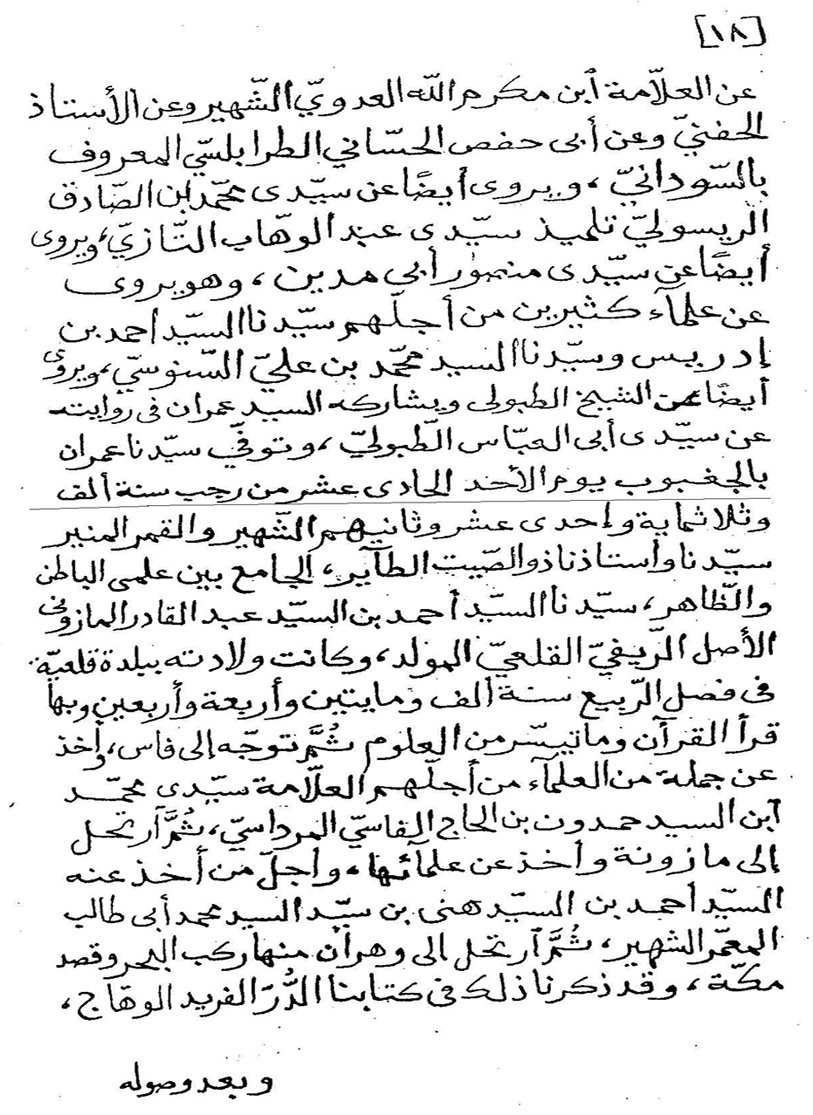 [١٨]
عن العلّامة ابن مكرم الله العدويّ الشّهير وعن الأستاذ
الحفنيّ وعن أبى حفص الحسّاني الطرابلسّي المعروف
بالسّودانيّ، ويروى أيضًا عن سيّدى محمّد ابن الصّادق
الريسوليّ تلميذ سيّدى عبد الوهّاب التّازيّ، ويروى
أيضًا عن سيّدى منصور أبي مدين، وهو يروى
عن علمآء كثيرين من أجلّهم سيّدنا السيّد احمد بن
إدريس وسيّدنا السيد محمّد بن عليّ السّنوسّي، ويروى
أيضًا عن الشيخ الطبولى ويشاركه السيد عمران فى روايته
عن سيّدى أبى العبّاس الطّبوليّ، وتوفّي سيّدنا عمران
بالجغبوب يوم الأحد الحادى عشر من رجب سنة ألف
وثلاثماية وإحدى عشر وثانيهم الشّهير والقمر المنير
سيّدنا وأستاذنا ذو الصّيت الطآير، الجامع بين علمى الباطن
والظّاهر، سيّدنا السيّد أحمد بن السيّد عبد القادر المازونى
الأصل الرّيفيّ القلعيّ المولد، وكانت ولادته ببلدة قلعيّة
فى فصل الرّبيع سنة ألف ومايتين وأربعة وأربعين وبها
قرأ القرآن وماتيسّر من العلوم ثُمَّ توجّه إلى فاس، وأخذ
عن جملة من العلمآء من أجلّهم العلّامة سيّدى محمّد
ابن السيد حمدون بن الحاج الفاسيّ المرداسيّ، ثُمَّ آرتحل
إلى مازونة وأخذ عن علمآئها، وأجلّ من أخذ عنه
السيّد أحمد بن السيّد هنى بن سيّد السيد محمد أبى طالب
المعمّر الشهير، ثُمَّ آرتحل الى وهران منها ركب البحر وقصد
مكّة، وقد ذكرنا ذلك فى كتابنا الدُّرَ الفريد الوهّاج،
وبعد وصوله